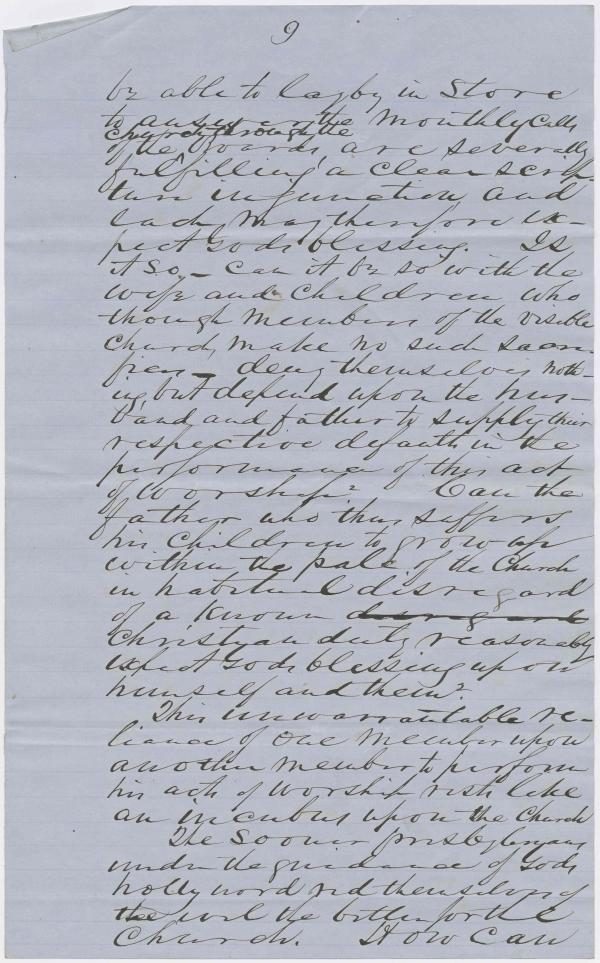 9
be able to lay by in Store
to answer the Monthly Calls
Church through the
of the Boards are severally
fulfilling a clear scrip-
ture injunction and
each may therefore ex-
pect Gods blessing. Is
it so,- can it be so with the
wife and children who
though members of the visible
Church make no such sacri-
fices - deny themselves noth-
ing but depend upon the hus-
band and father to supply their
respective defaults in the
performance of this act
of worship? Can the
father who thus suffers
his children to grow up
within the pale of the Church
in habitual disregard
of a known disregard
Christian duty reasonably
expect Gods blessing upon
himself and them?
This unwarrantable re-
liance of one member upon
another member to perform
his acts of worship rests like
an incubus upon the Church
The Sooner Presbyterians
under the guidance of Gods
holly word rid themselves of
the evil the better for the
Church. How Can